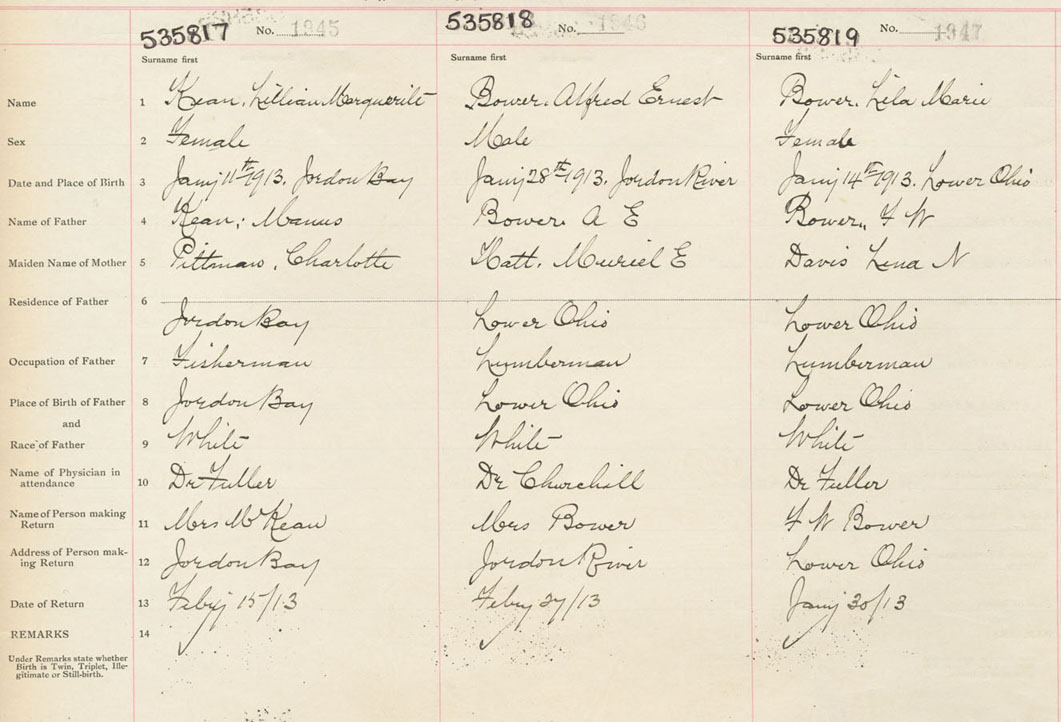 535817 No. 1345 535818 No. 1346 535819 No. 1347
Surname first Surname first Surname first
Name 1 Kean, Lillian Marguerite Bower. Alfred Ernest Bower. Lila Marie
Sex 2 Female Male Female
Date and Place of Birth 3 Jany 11th 1913. Jordon Bay Jany 28th 1913. Jordon River Jany 14th 1913. Lower Ohio
Name of Father 4 Kean, Manus Bower. A E Bower, F W
Maiden Name of Mother 5 Pittman, Charlotte Hatt. Muriel E Davis Lena N
Residence of Father 6 Jordon Bay Lower Ohio Lower Ohio
Occupation of Father 7 Fisherman Lumberman Lumberman
Place of Birth of Father 8 Jordon Bay Lower Ohio Lower Ohio
and
Race of Father 9 White White White
Name of Physician in
attendance 10 Dr Fuller Dr Churchill Dr Fuller
Name of Person making
Return 11 Mrs M Kean Mrs Bower F W Bower
Address of Person mak-
ing Return 12 Jordon Bay Jordon River Lower Ohio
Date of Return 13 Feby 15/13 Feby 27/13 Jany 30/13
REMARKS 14
Under Remarks state whether
Birth is Twin, Triplet, Ille-
gitimate or Still-birth.